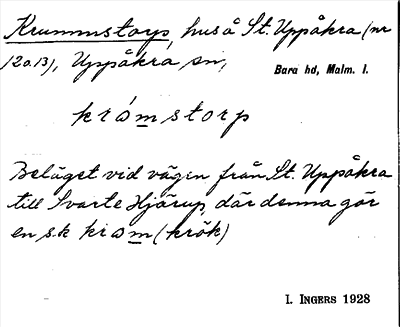 Krummstorp, hus å St. Uppåkra (nr
12o.13), Uppåkra sn,
Bara hd, Malm. l.
kråmstorp
Beläget vid vägen från St. Uppåkra
till Svarte Hjärup, där denna gör
en s.k. kram (krök)
I. INGERS 1928